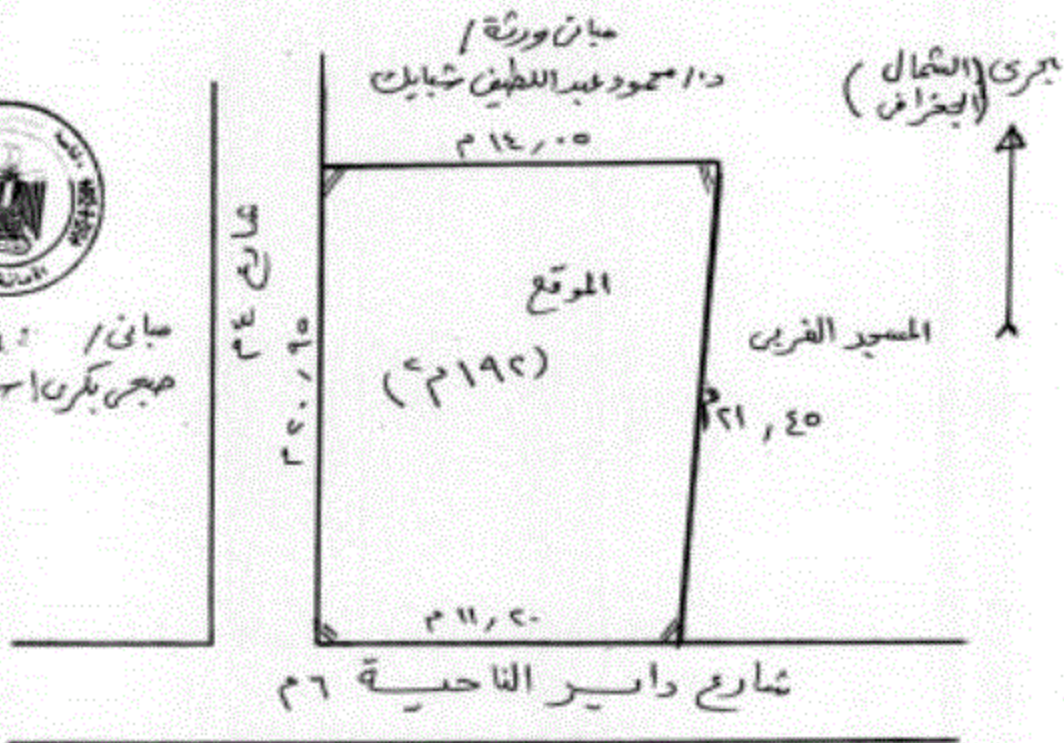 مبانى ورثة /
د./ محمود عبد اللطيف شبايك
١٤,٠٥ م
بحرى (الشمال
الجغرافى)
شارع ٣م
٢٠,٦٥م
الموقع
(١٩٢م٢)
المسجد الغربى
٢١,٤٥م
مبانى /
صبحى بكرى
١١,٢٠ م
شارع داير الناحية ٦م